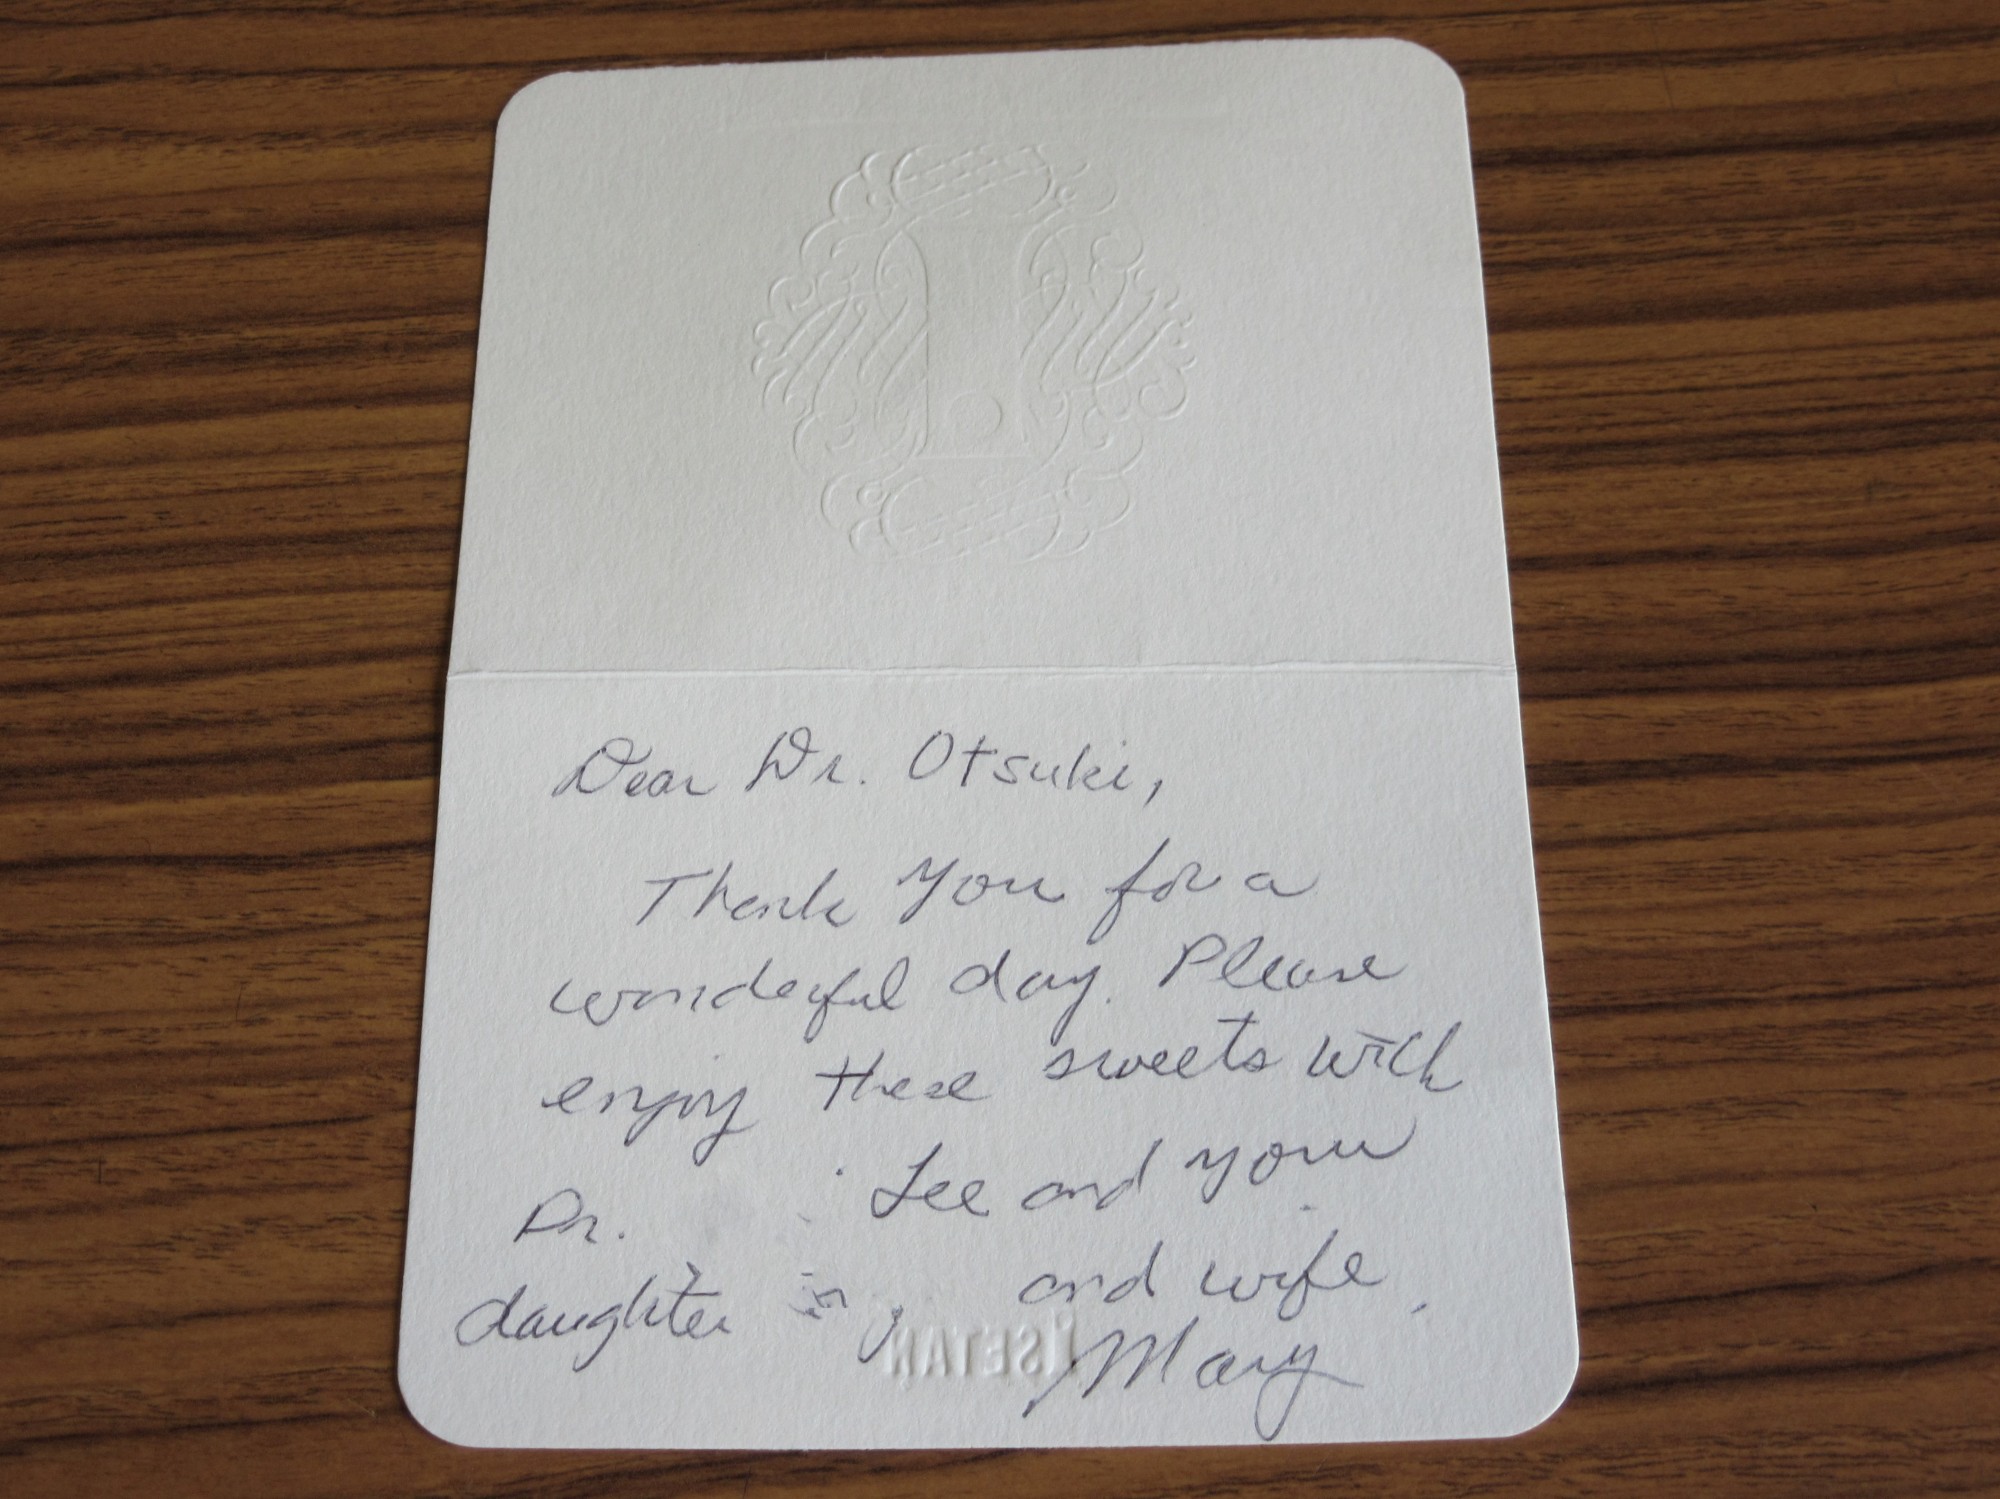 Dear Dr. Otsuki,
Thank you for a
wonderful day. Please
enjoy these sweets with
Dr. Lee and your
daughter and wife.
Mary
ISETAN